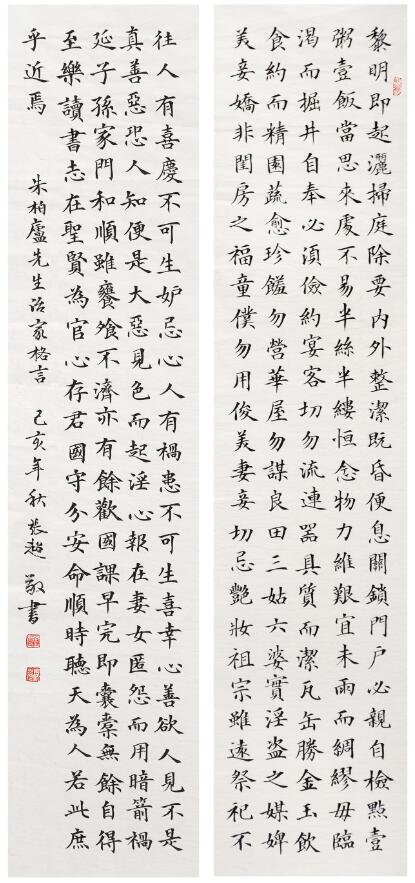 黎明即起灑掃庭除要內外整潔既昏便息關鎖門戶必親自檢點壹
粥壹飯當思來處不易半絲半縷恒念物力維艱宜未雨而綢繆毋臨
渴而掘井自奉必須儉約宴客切勿流連器具質而潔瓦缶勝金玉飲
食約而精園蔬愈珍饈勿營華屋勿謀良田三姑六婆實淫盜之媒婢
美妾嬌非閨房之福童僕勿用俊美妻妾切忌艷妝祖宗雖遠祭祀不
往人有喜慶不可生妒忌心人有禍患不可生喜幸心善欲人見不是
真善惡恐人知便是大惡見色而起淫心報在妻女匿怨而用暗箭禍
延子孫家門和順雖饔飧不濟亦有餘歡國課早完即囊橐無餘自得
至樂讀書志在聖賢為官心存君國守分安命順時聽天為人若此庶
乎近焉
朱柏廬先生治家格言 己亥年秋張超敬書